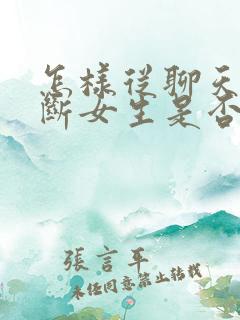 怎樣從聊天
斷女生是否
張言平
未經同意禁止轉載